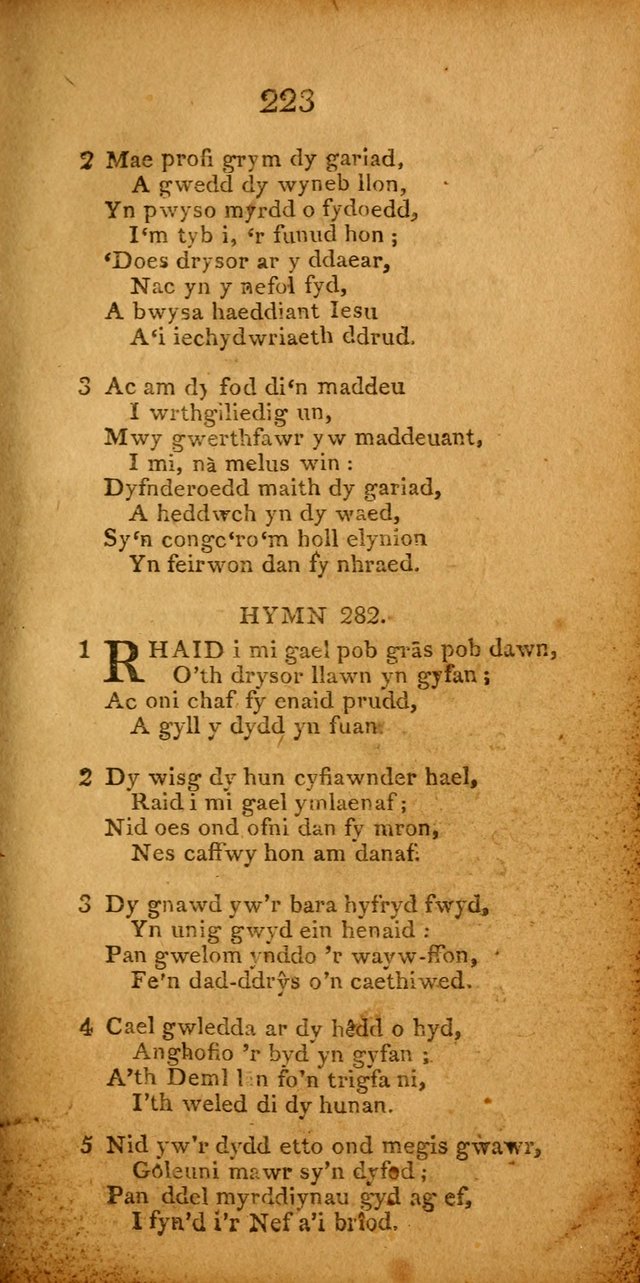 223
2 Mae profi grym dy gariad,
A gwedd dy wyneb llon,
Yn pwyso myrdd o fydoedd,
I‘m tyb i, ‘r funud hon ;
‘Does drysor ar y ddaear,
Nac yn y nefol fyd,
A bwysa haeddiant Iesu
A‘i iechydwriaeth ddrud.
3 Ac am dy fod di‘n maddeu
I wrthgiliedig un,
Mwy gwerthfawr yw maddeuant,
I mi, nà melus win :
Dyfnderoedd maith dy gariad,
A heddwch yn dy waed,
Sy‘n congc‘ro‘m holl elynion
Yn feirwon dan fy nhraed.
HYMN 282.
1 RHAID i mi gael pob grâs pob dawn,
O'th drysor llawn yn gyfan ;
Ac oni chaf fy enaid prudd,
A gyll y dydd yn fuan.
2 Dy wisg dy hun cyfiawnder hael,
Raid i mi gael ymlaenaf ;
Nid oes ond ofni dan fy mron,
Nes caffwy hon am danaf.
3 Dy gnawd yw'r bara hyfryd fwyd,
Yn unig gwyd ein henaid :
Pan gwelom ynddo 'r wayw-ffon,
Fe'n dad-ddrŷs o'n caethiwed.
4 Cael gwledda ar dy hêdd o hyd,
Anghofio 'r byd yn gyfan ;
A'th Deml lân fo'n trigfa ni,
I'th weled di dy hunan.
5 Nid yw'r dydd etto ond megis gwawr,
Gôleuni mawr sy'n dyfod ;
Pan ddel myrddiynau gyd ag ef,
I fyn'd i'r Nef a'i briod.